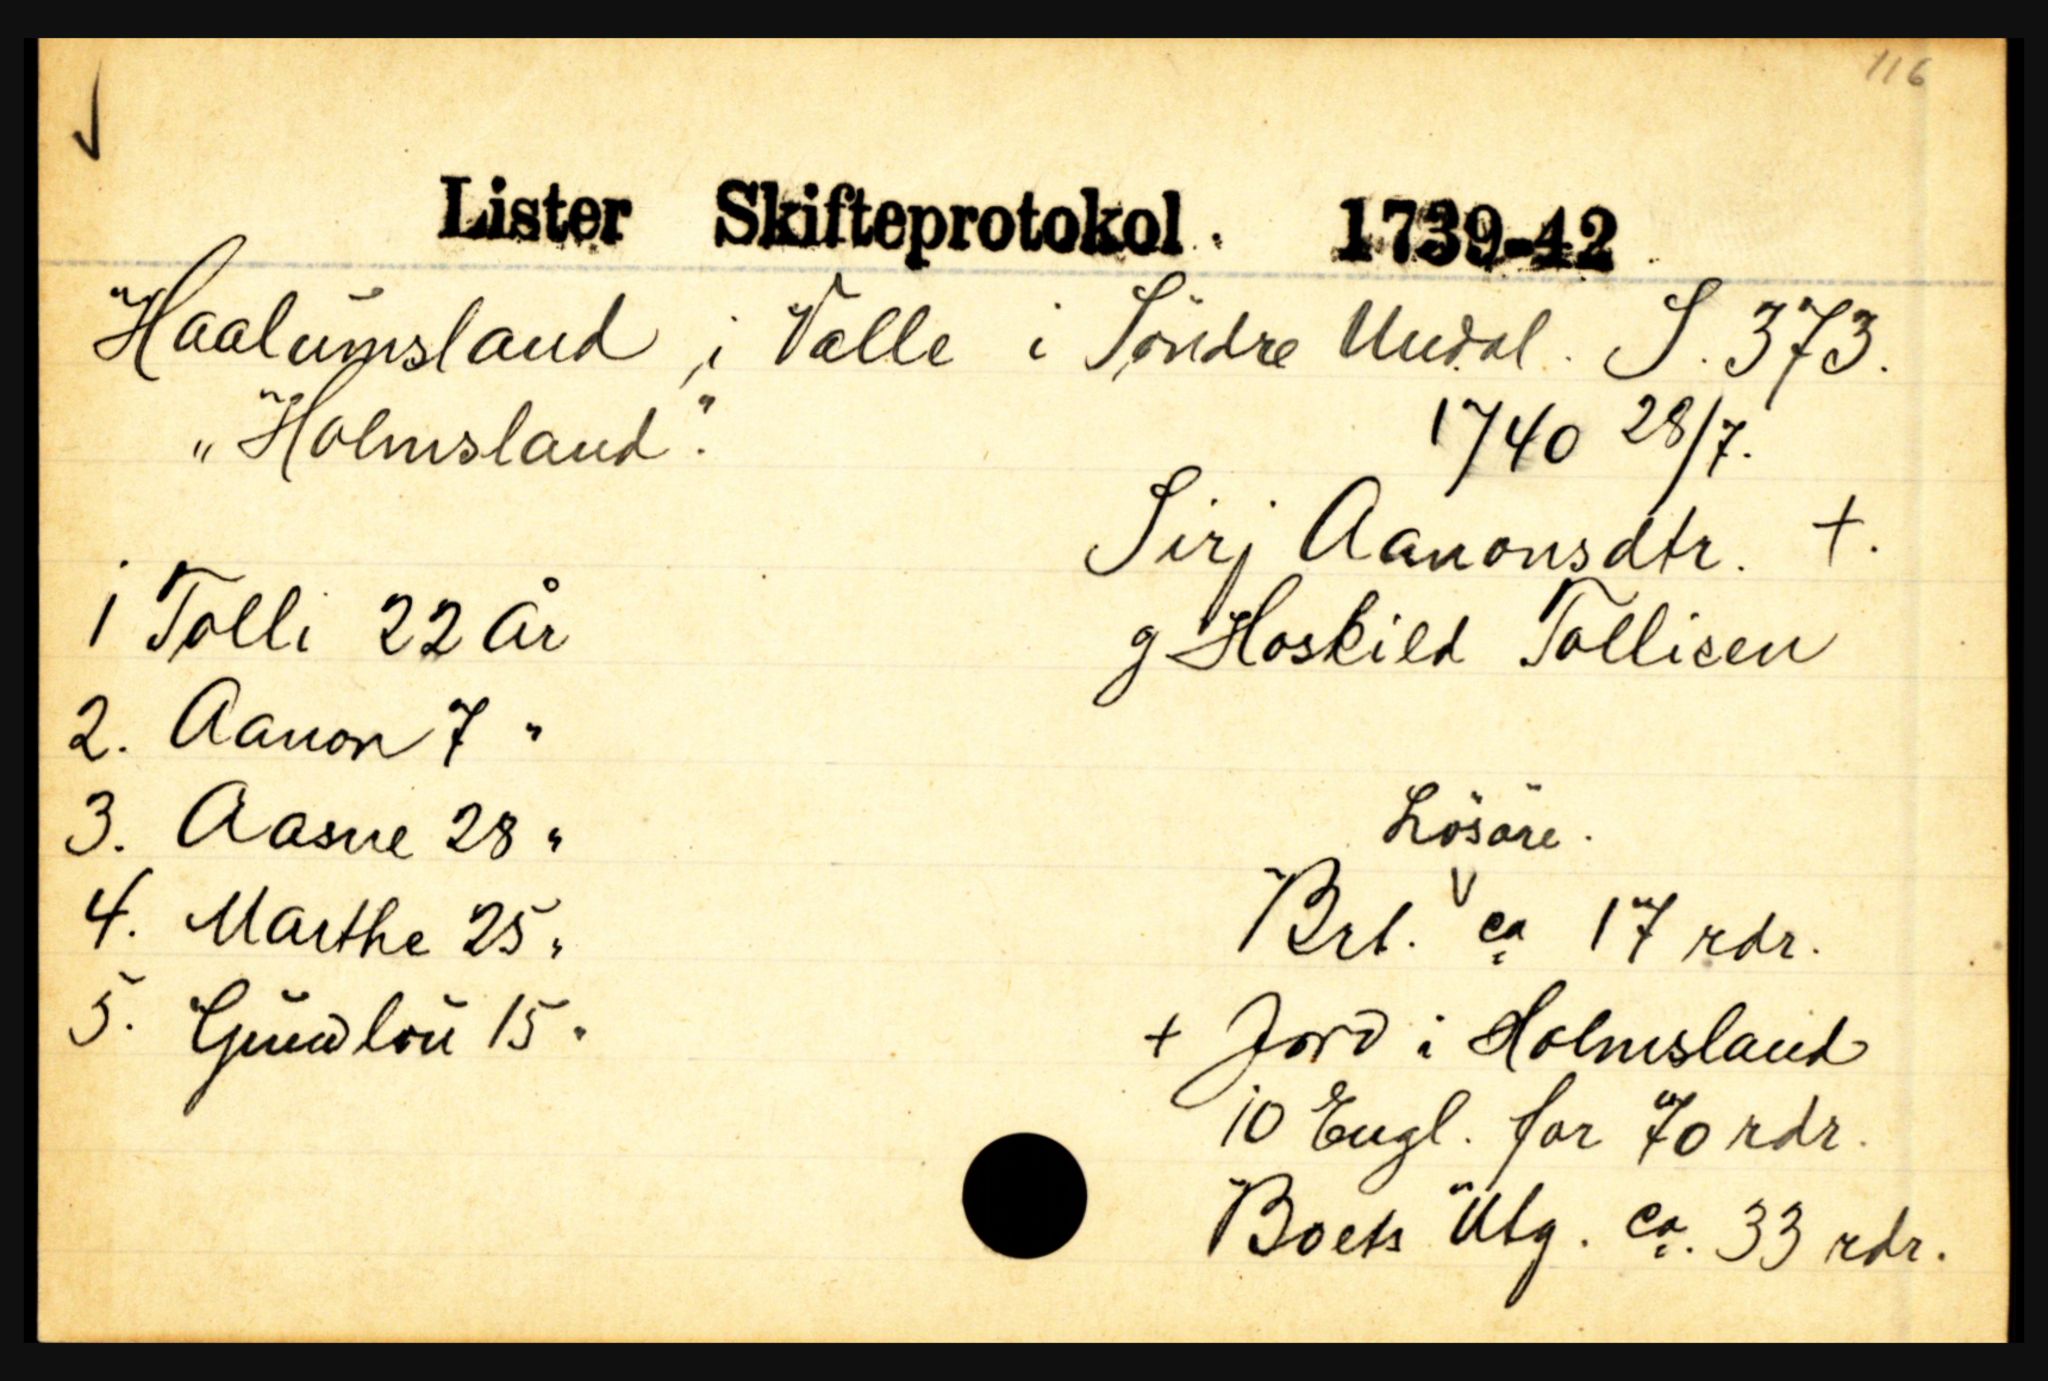 116
Lister Skifteprotokol. 1739-42
Haalumsland i Valle i Söndre Undal. S. 373.
„Holmsland".
1740 28/7.
Sirj Aanonsdtr. +.
g Hoskild Tollisen
1 Tolli 22 År
2. Aanon 7 "
3. Aasne 28 "
4. Marthe 25 "
5. Gundlou 15 "
Lösöre.
Brt. V ca 17 rdr.
+ Jord i Holmsland
10 Engl. for 70 rdr.
Boets Utg. ca. 33 rdr.